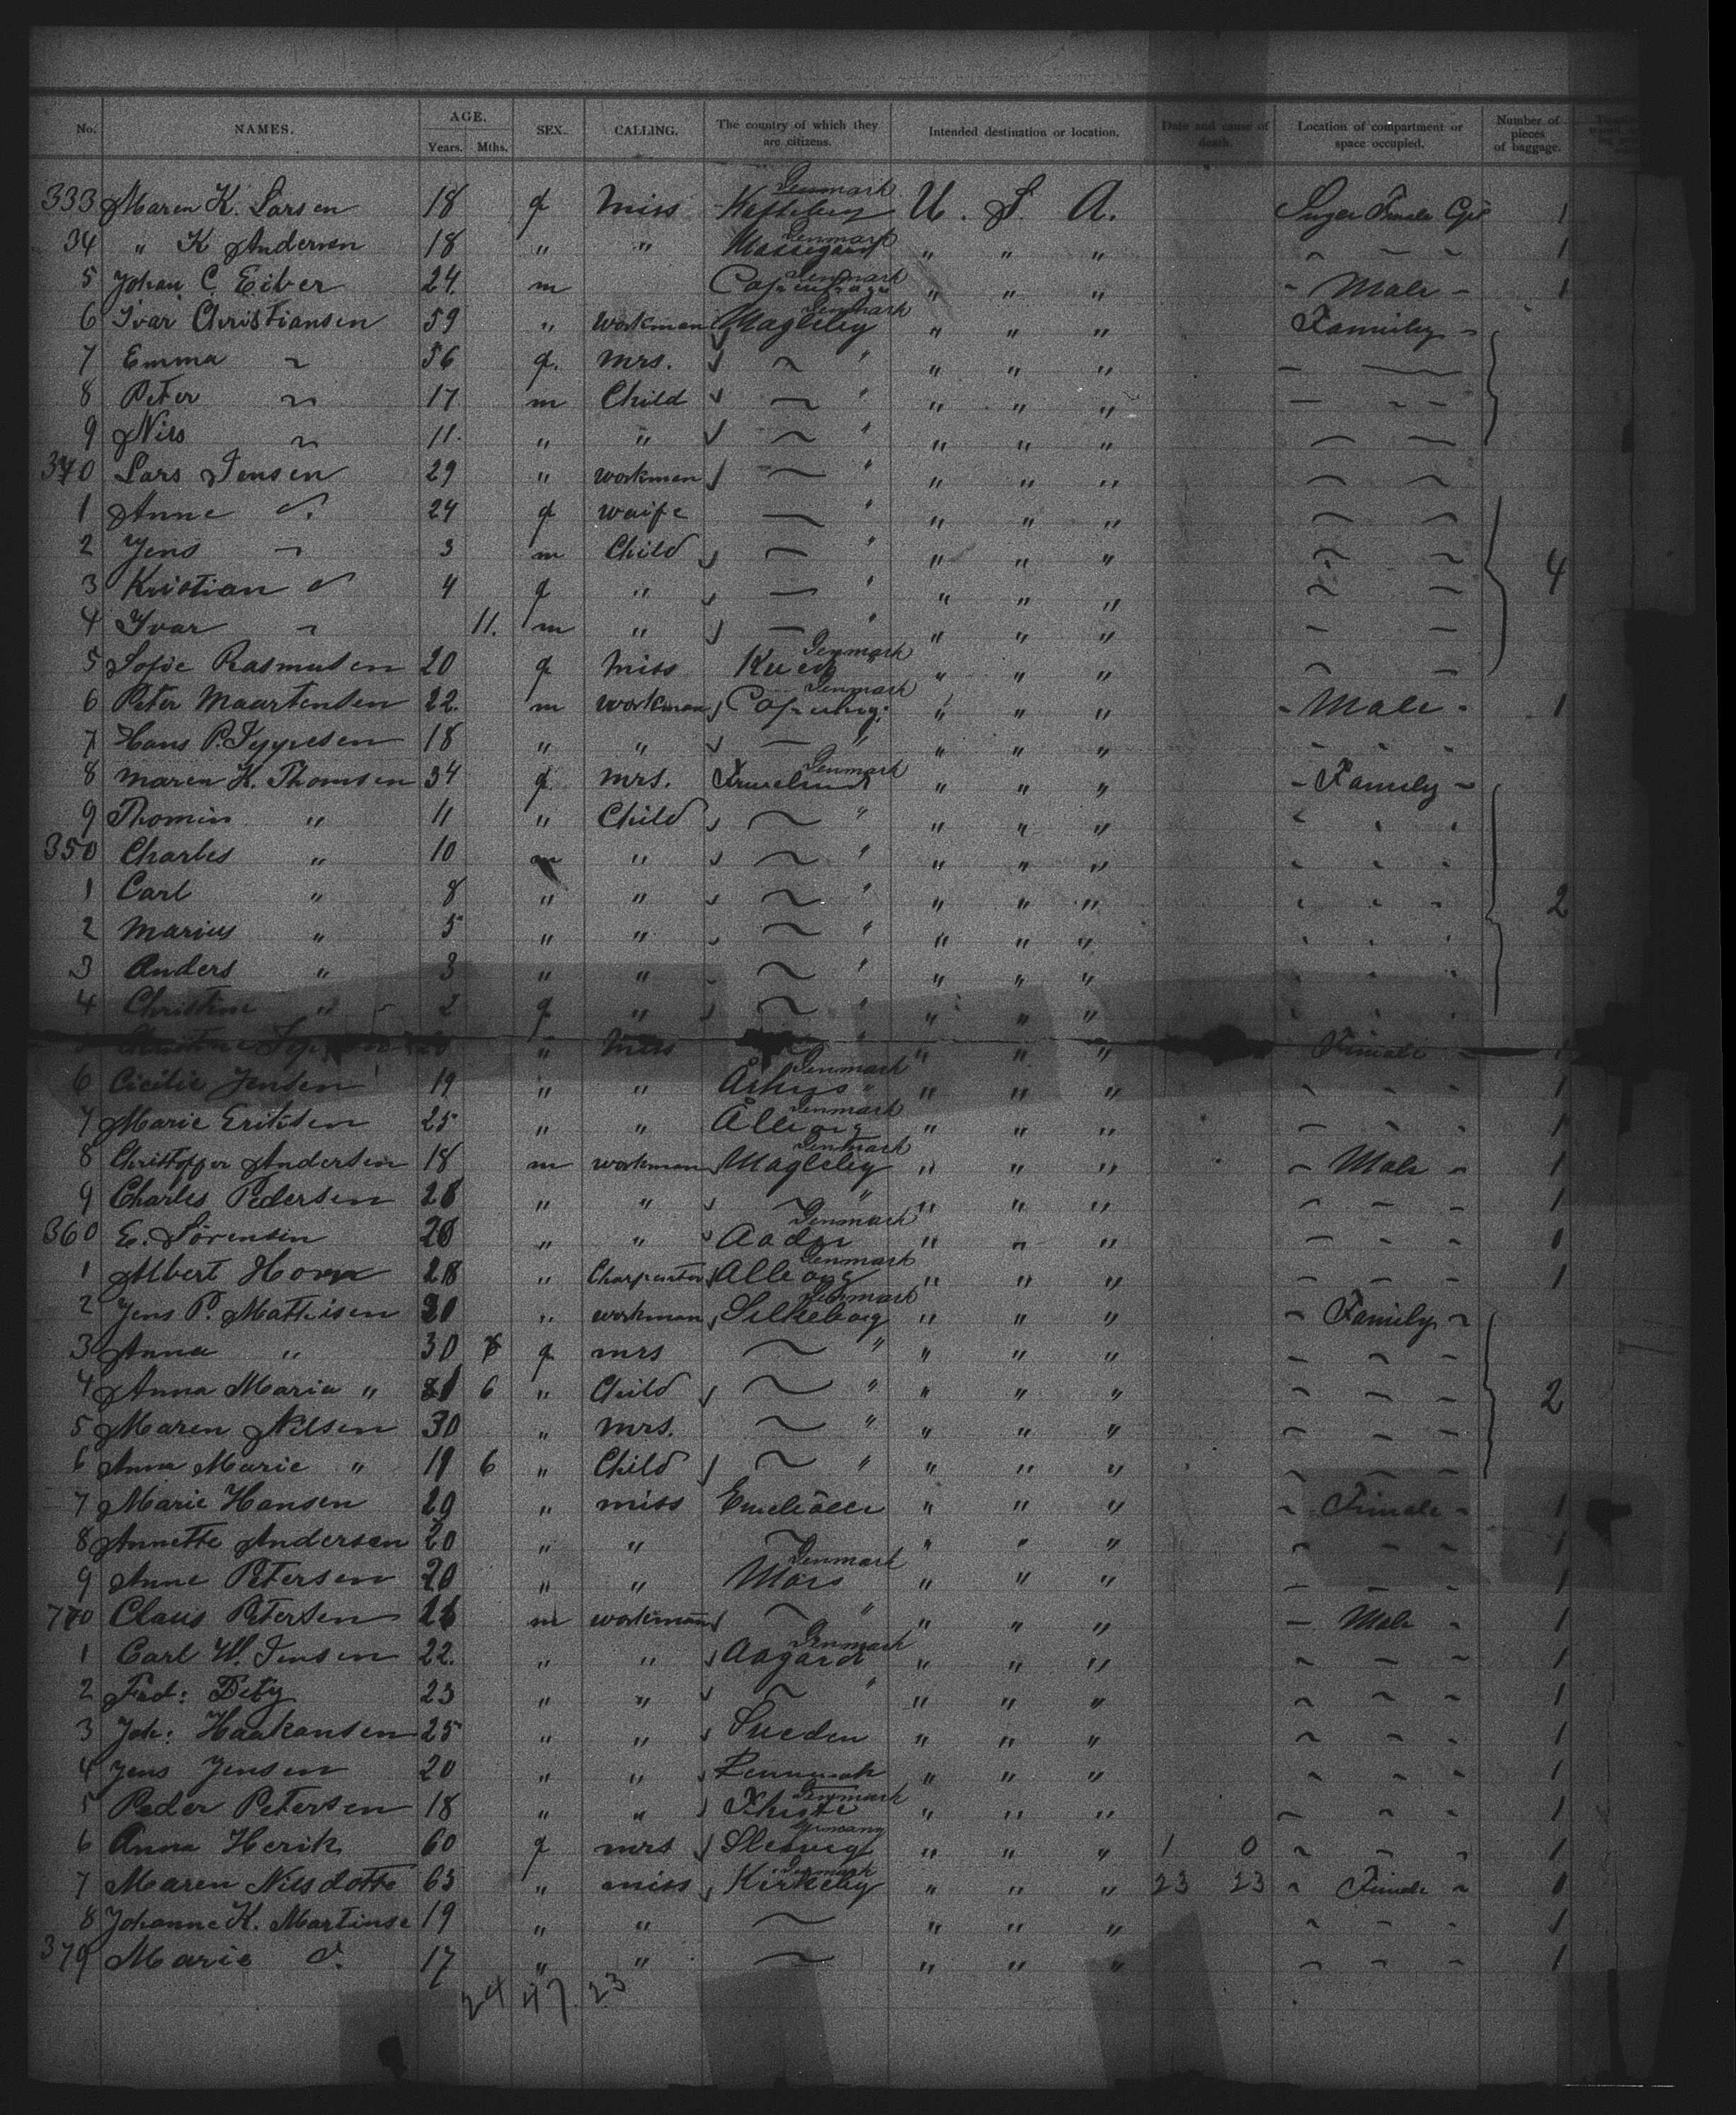 No. NAMES. AGE. Years. Mths. SEX. CALLING. The country of which they are citizens. Intended destination or location. Date and cause of death. Location of compartment or space occupied. Number of pieces of baggage.
333 Maren K. Larsen 18 f Miss Denmark U. S. A. Female 1
34 " K Andersen 18 " " Denmark " " " 1
5 Johan C. Eiber 24 m Denmark " " " - Male - 1
6 Ivar Christiansen 59 " workman Magleby Denmark " " " Family -
7 Emma ~ 56 f. mrs. ~ " " " "
8 Peter ~ 17 m Child ~ " " " "
9 Nils ~ 11. " " ~ " " " "
340 Lars Jensen 29 " workman ~ " " " "
1 Anne 24 f waife ~ " " " "
2 Jens ~ 3 m Child ~ " " " " 4
3 Kristian 4 f " ~ " " " "
4 Ivar ~ 11. m " ~ " " " "
5 Sofie Rasmusen 20 f Miss Denmark " " "
6 Peter Maartensen 22. m workman Denmark " " " - Male - 1
7 Hans P. 18 " " ~ " " " "
8 Maren K. Thomsen 34 f mrs. Denmark " " " - Family -
9 Thomin " 11 " Child ~ " " " "
350 Charles " 10 m " ~ " " " "
1 Carl " 8 " " ~ " " " " 2
2 Marius " 5 " " ~ " " " "
3 Anders " 3 " " ~ " " " "
4 Christine " 2 f " ~ " " " "
" Miss " " " Female - 1
6 Cicilie Jensen 19 " " Århus Denmark " " " 1
7 Marie Eriksen 25 " " Denmark " " " 1
8 Christoffer Andersen 18 m workman Magleby Denmark " " " - Male - 1
9 Charles Pedersen 28 " " ~ " " " " 1
360 E. Sörensen 20 " " Denmark " " " 1
1 Albert Horn 28 " Charpentor Denmark " " " 1
2 Jens P. Mathisen 30 " workman Silkeborg Denmark " " " - Family ~
3 Anna " 30 f mrs ~ " " " "
4 Anna Maria " 1 6 " Child ~ " " " " 2
5 Maren Nilsen 30 " mrs. ~ " " " "
6 Anna Marie " 6 " Child ~ " " " "
7 Marie Hansen 29 " miss " " " - Female - 1
8 Annette Andersen 20 " " ~ " " " 1
9 Anne Petersen 20 " " Mors Denmark " " " 1
770 Claus Petersen m workman ~ " " " " - Male - 1
1 Carl W. Jensen 22. " " Aagard Denmark " " " 1
2 Fred: 23 " " ~ " " " " 1
3 Joh: Haakansen 25 " " Sueden " " " 1
4 Jens Jensen 20 " " " " " 1
5 Peder Petersen 18 " " Denmark " " " 1
6 Anna Herik 60 f mrs Slesvig Germany " " " 1 0 1
7 Maren Nilsdotte 63 " miss Kirkeby Denmark " " " 23 23 Female ~ 1
8 Johanne K. Martinse 19 " " ~ " " " 1
379 Marie 17 " " ~ " " " 1
24 47 23